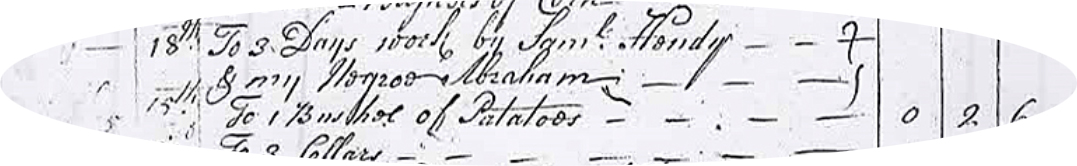 18th To 3 Days work by Saml. Hendy - - }
& my Negroe Abraham - - - }
15th To 1 Bushel of Patatoes - - . - - 0 2 6
To 2 Collars - - - - - -